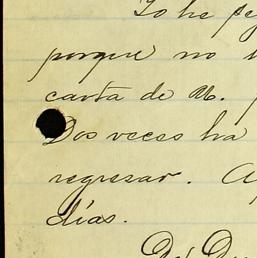 Yo he
porque no
carta de M.
Dos veces ha
regresar. A
días.